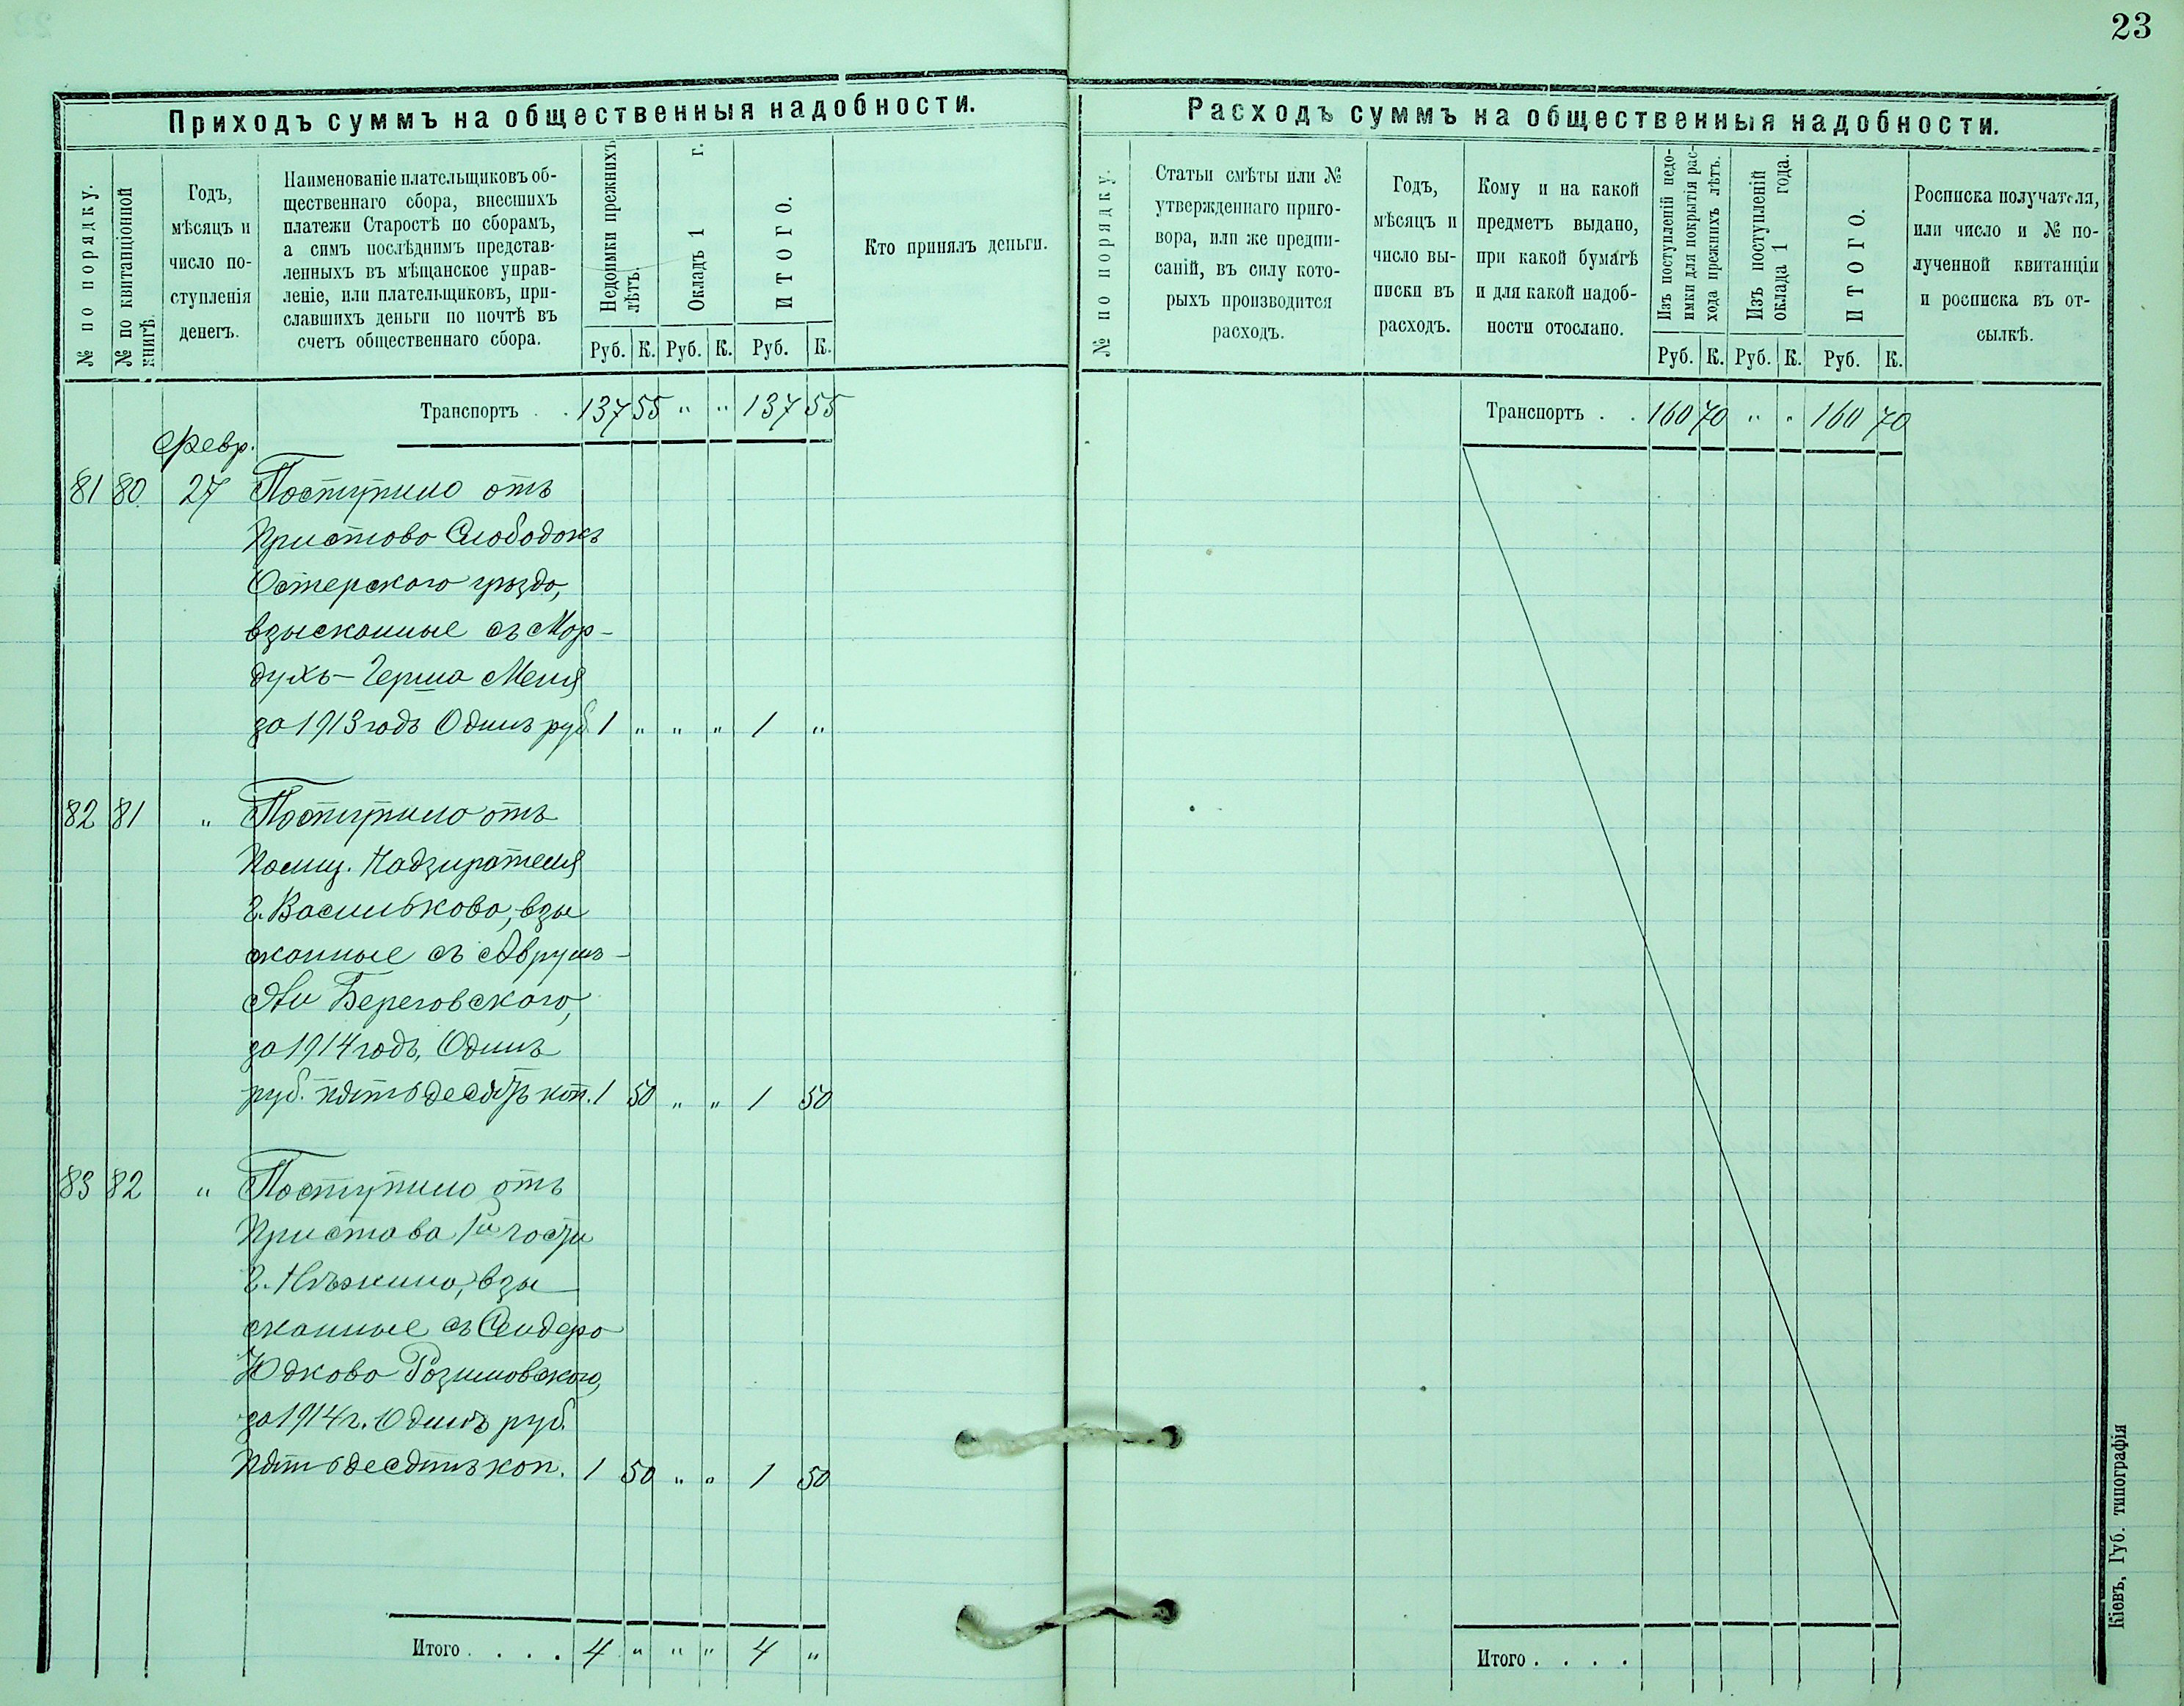 23
Приходъ суммъ на общественныя надобности.
№ по порядку.
№ по квитанціонной
книгѣ.
Годъ,
мѣсяцъ и
число по-
ступленія
денегъ.
Наименованіе плательщиковъ об-
щественнаго сбора, внесшихъ
платежи Старостѣ по сборамъ,
а симъ послѣднимъ представ-
ленныхъ въ мѣщанское управ-
леніе, или плательщиковъ, при-
славшихъ деньги по почтѣ въ
счетъ общественнаго сбора.
Недоимки прежнихъ
лѣтъ.
Окладъ 1 г.
ИТОГО.
Руб. К. Руб. К. Руб. К.
Кто принялъ деньги.
Транспортъ . . 137 55 " " 137 55
Февр.
81 80 27 Поступило отъ
Пристава Слободокъ
Остерского уѣзда,
взысканные съ Мор-
духъ-Герша
за 1913 годъ Одинъ руб. 1 " " " 1 "
82 81 " Поступило отъ
Полиц. Надзирателя
г. Василькова, взы
сканные съ Аврумъ-
Береговского,
за 1914 годъ, Одинъ
руб. пятьдесятъ коп. 1 50 " " 1 50
83 82 " Поступило отъ
Пристава 1й части
г. Нѣжина, взы
сканные съ Сендера
Юдкова
за 1914 г. Одинъ руб.
пятьдесятъ коп. 1 50 " " 1 50
Итого . . . . 4 " " " 4 "
Расходъ суммъ на общественныя надобности.
№ по порядку.
Статьи смѣты или №
утвержденнаго приго-
вора, или же предпи-
саній, въ силу кото-
рыхъ производится
расходъ.
Годъ,
мѣсяцъ и
число вы-
писки въ
расходъ.
Кому и на какой
предметъ выдано,
при какой бумагѣ
и для какой надоб-
ности отослано.
Изъ поступленій недо-
имки для покрытія рас-
хода прежнихъ лѣтъ.
Изъ поступленій
оклада 1 года.
ИТОГО.
Руб. К. Руб. К. Руб. К.
Росписка получателя,
или число и № по-
лученной квитанціи
и росписка въ от-
сылкѣ.
Транспортъ . . 160 70 " " 160 70
Итого . . . .
Кіевъ, Губ. типографія